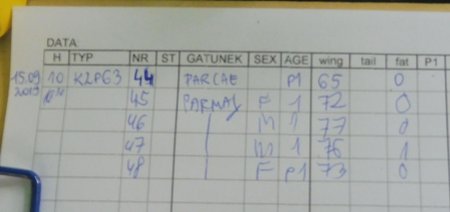 DATA
H TYP NR ST GATUNEK SEX AGE wing tail fat P1
15.09 10 K2P63 44 PARCAE P1 65 0
2019 45 PARMAJ F 1 72 0
46 M 1 77 0
47 M 1 76 1
48 F P1 73 0